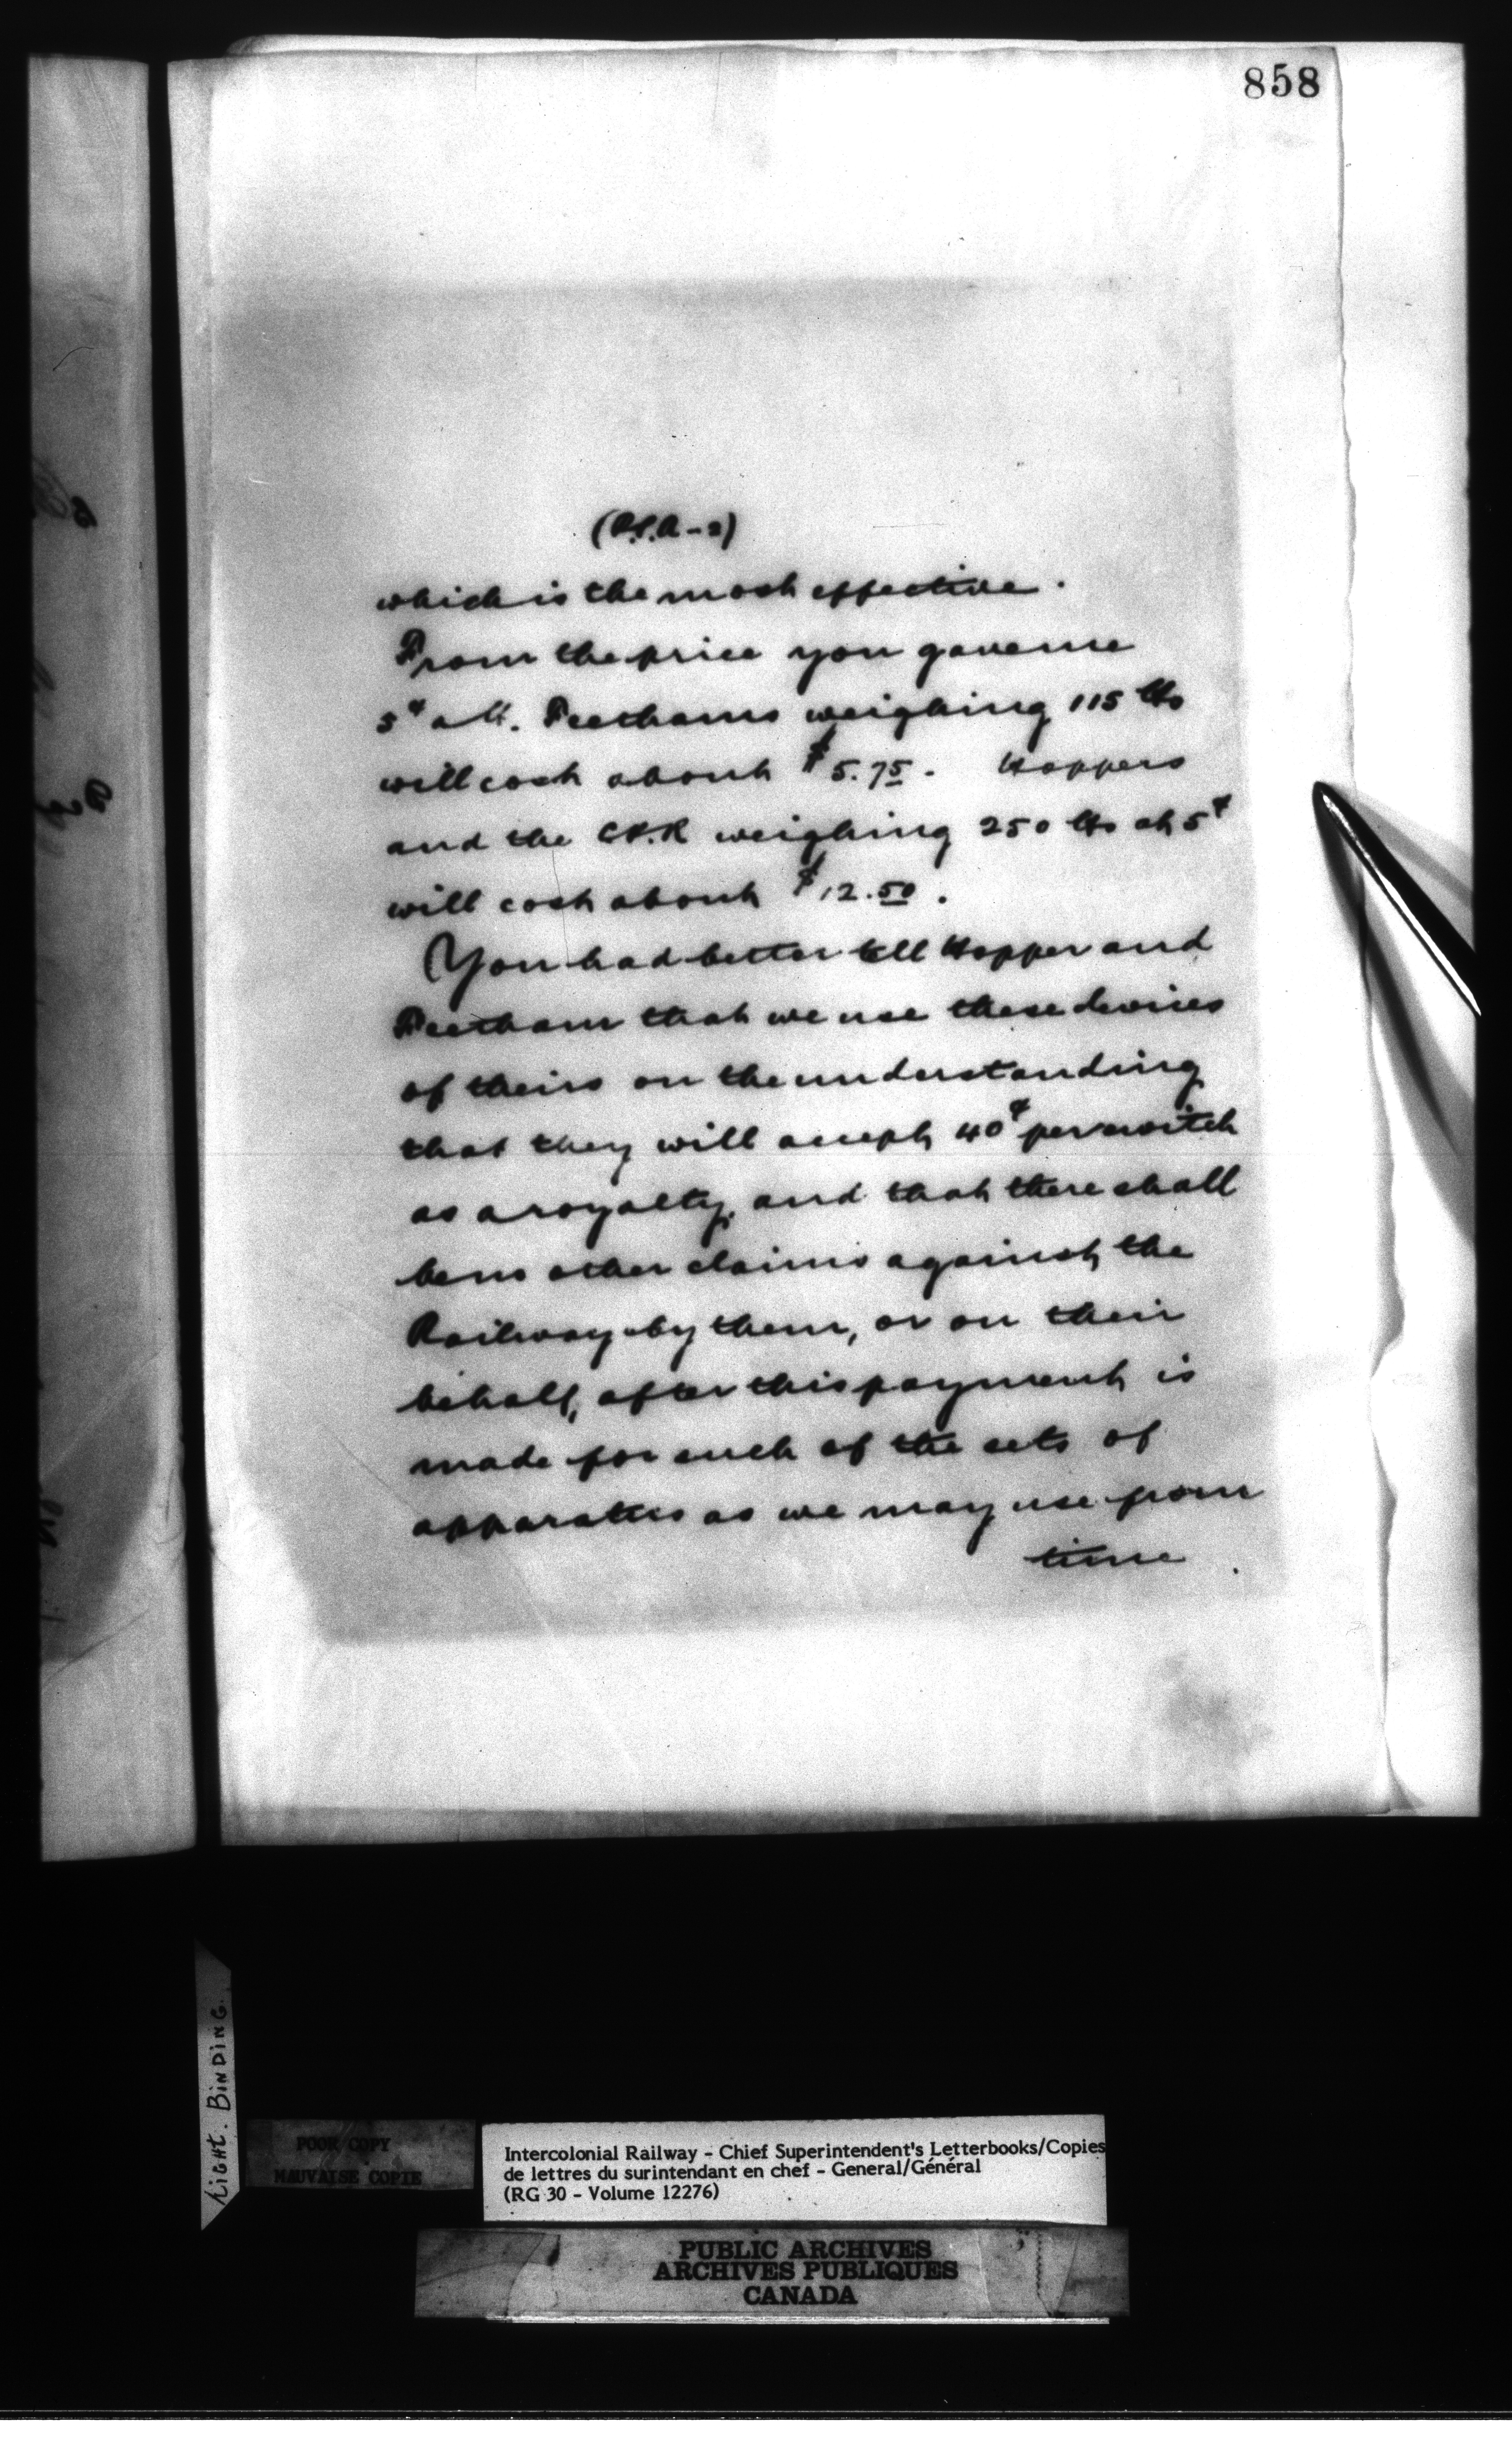 858
(P.S.A - 2)
which is the most effective.
From the price you gave me
5¢ a lb. Peethams weighing 115 lbs
will cost about $5.75. Hoppers
and the C.P.R weighing 250 lbs at 5¢
will cost about $12.50.
You had better tell Hopper and
Peetham that we use these devices
of theirs on the understanding
that they will accept 40¢ per switch
as a royalty, and that there shall
be no other claims against the
Railway by them, or on their
behalf, after this payment is
made for such of the sets of
apparatus as we may use from
time
LIGHT. BINDING.
POOR COPY
MAUVAISE COPIE
Intercolonial Railway - Chief Superintendent's Letterbooks/Copies
de lettres du surintendant en chef - General/Général
(RG 30 - Volume 12276)
PUBLIC ARCHIVES
ARCHIVES PUBLIQUES
CANADA